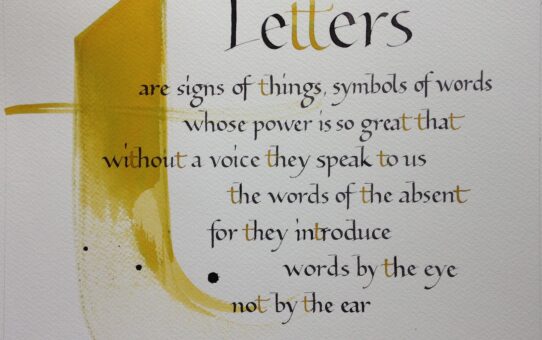 Letters
are signs of things, symbols of words
whose power is so great that
without a voice they speak to us
the words of the absent
for they introduce
words by the eye
not by the ear